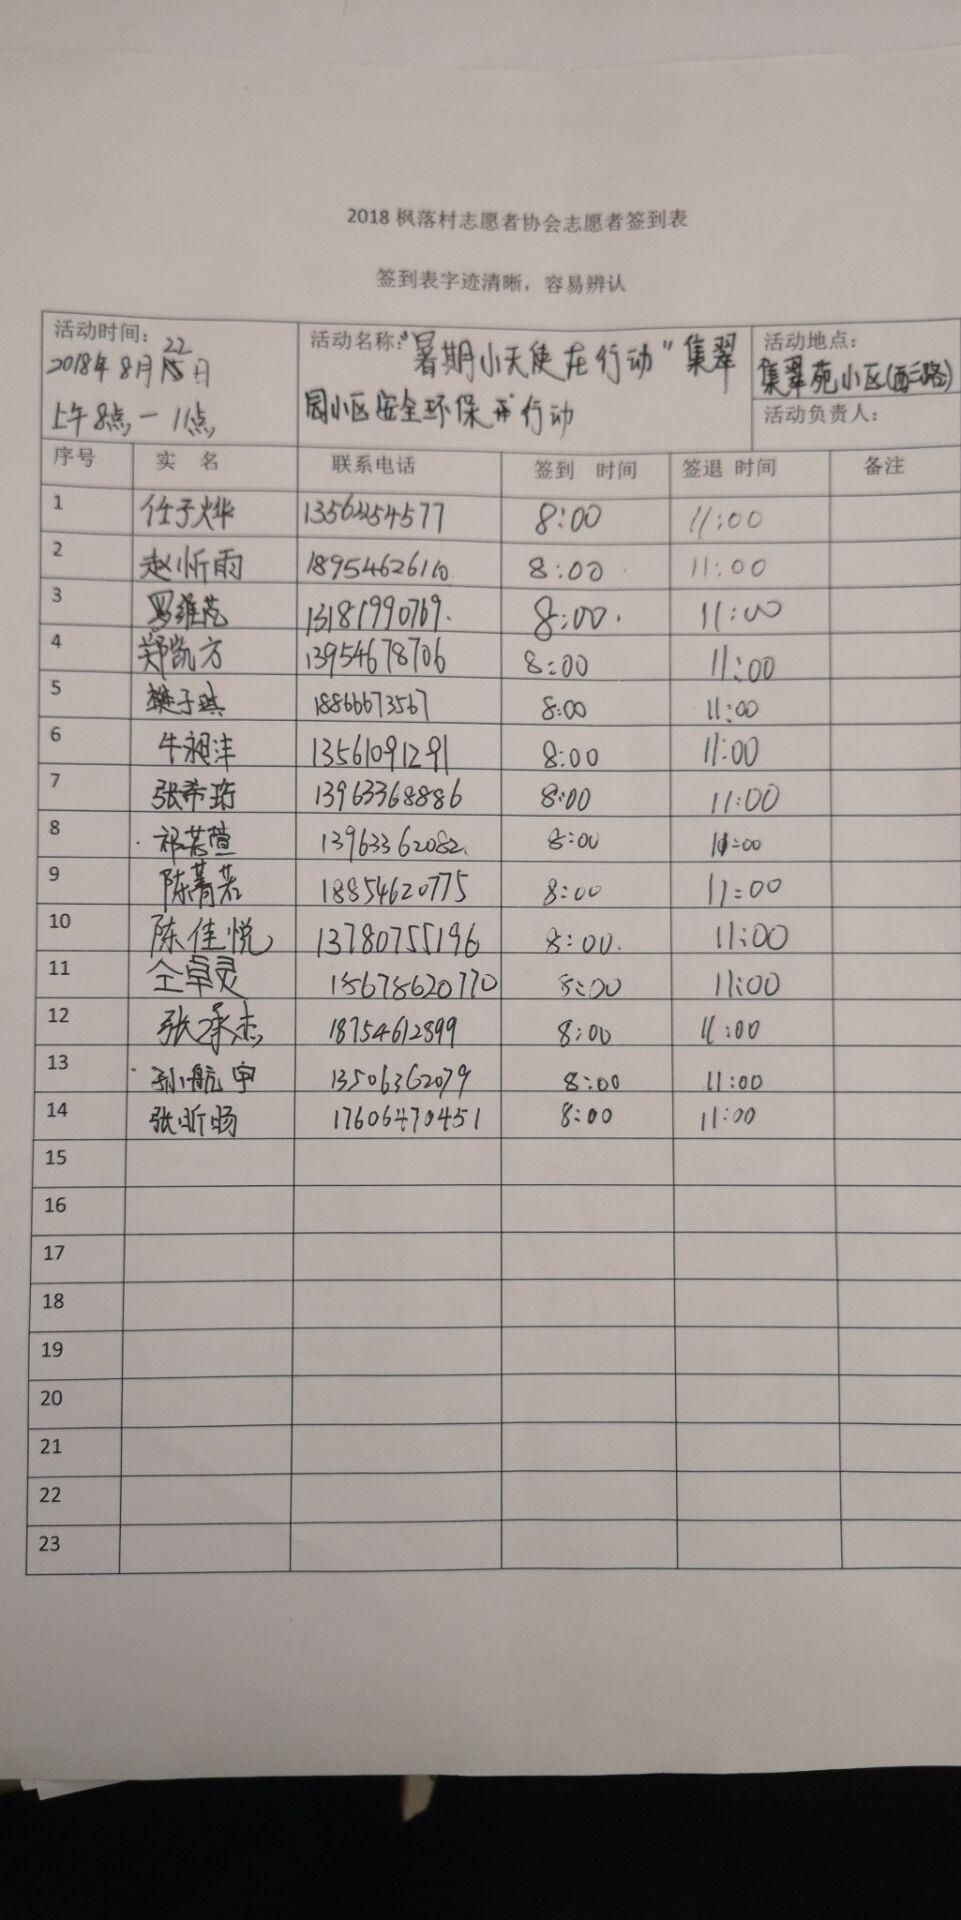 2018 枫落村志愿者协会志愿者签到表
签到表字迹清晰，容易辨认
活动时间：
22
2018年8月15日
上午8点一11点
活动名称："暑期小天使在行动"集翠
园小区安全环保 行动
活动地点：
集翠苑小区(西三路)
活动负责人：
序号 实 名 联系电话 签到 时间 签退 时间 备注
1 任子烨 13562454577 8:00 11:00
2 赵忻雨 18954626110 8:00 11:00
3 罗维芪 13181990769. 8:00. 11:00
4 郑凯方 13954678706 8:00 11:00
5 樊子琪 18866673567 8:00 11:00
6 牛昶沣 13561091291 8:00 11:00
7 张希珩 13963368886 8:00 11:00
8 祁若萱 13963362082. 8:00 11:00
9 陈菁若 18854620775 8:00 11:00
10 陈佳悦 13780755196 8:00. 11:00
11 仝卓灵 15678620770 8:00 11:00
12 张承杰 18754612899 8:00 11:00
13 孙航宇 13506362079 8:00 11:00
14 张昕旸 17606470451 8:00 11:00
15
16
17
18
19
20
21
22
23